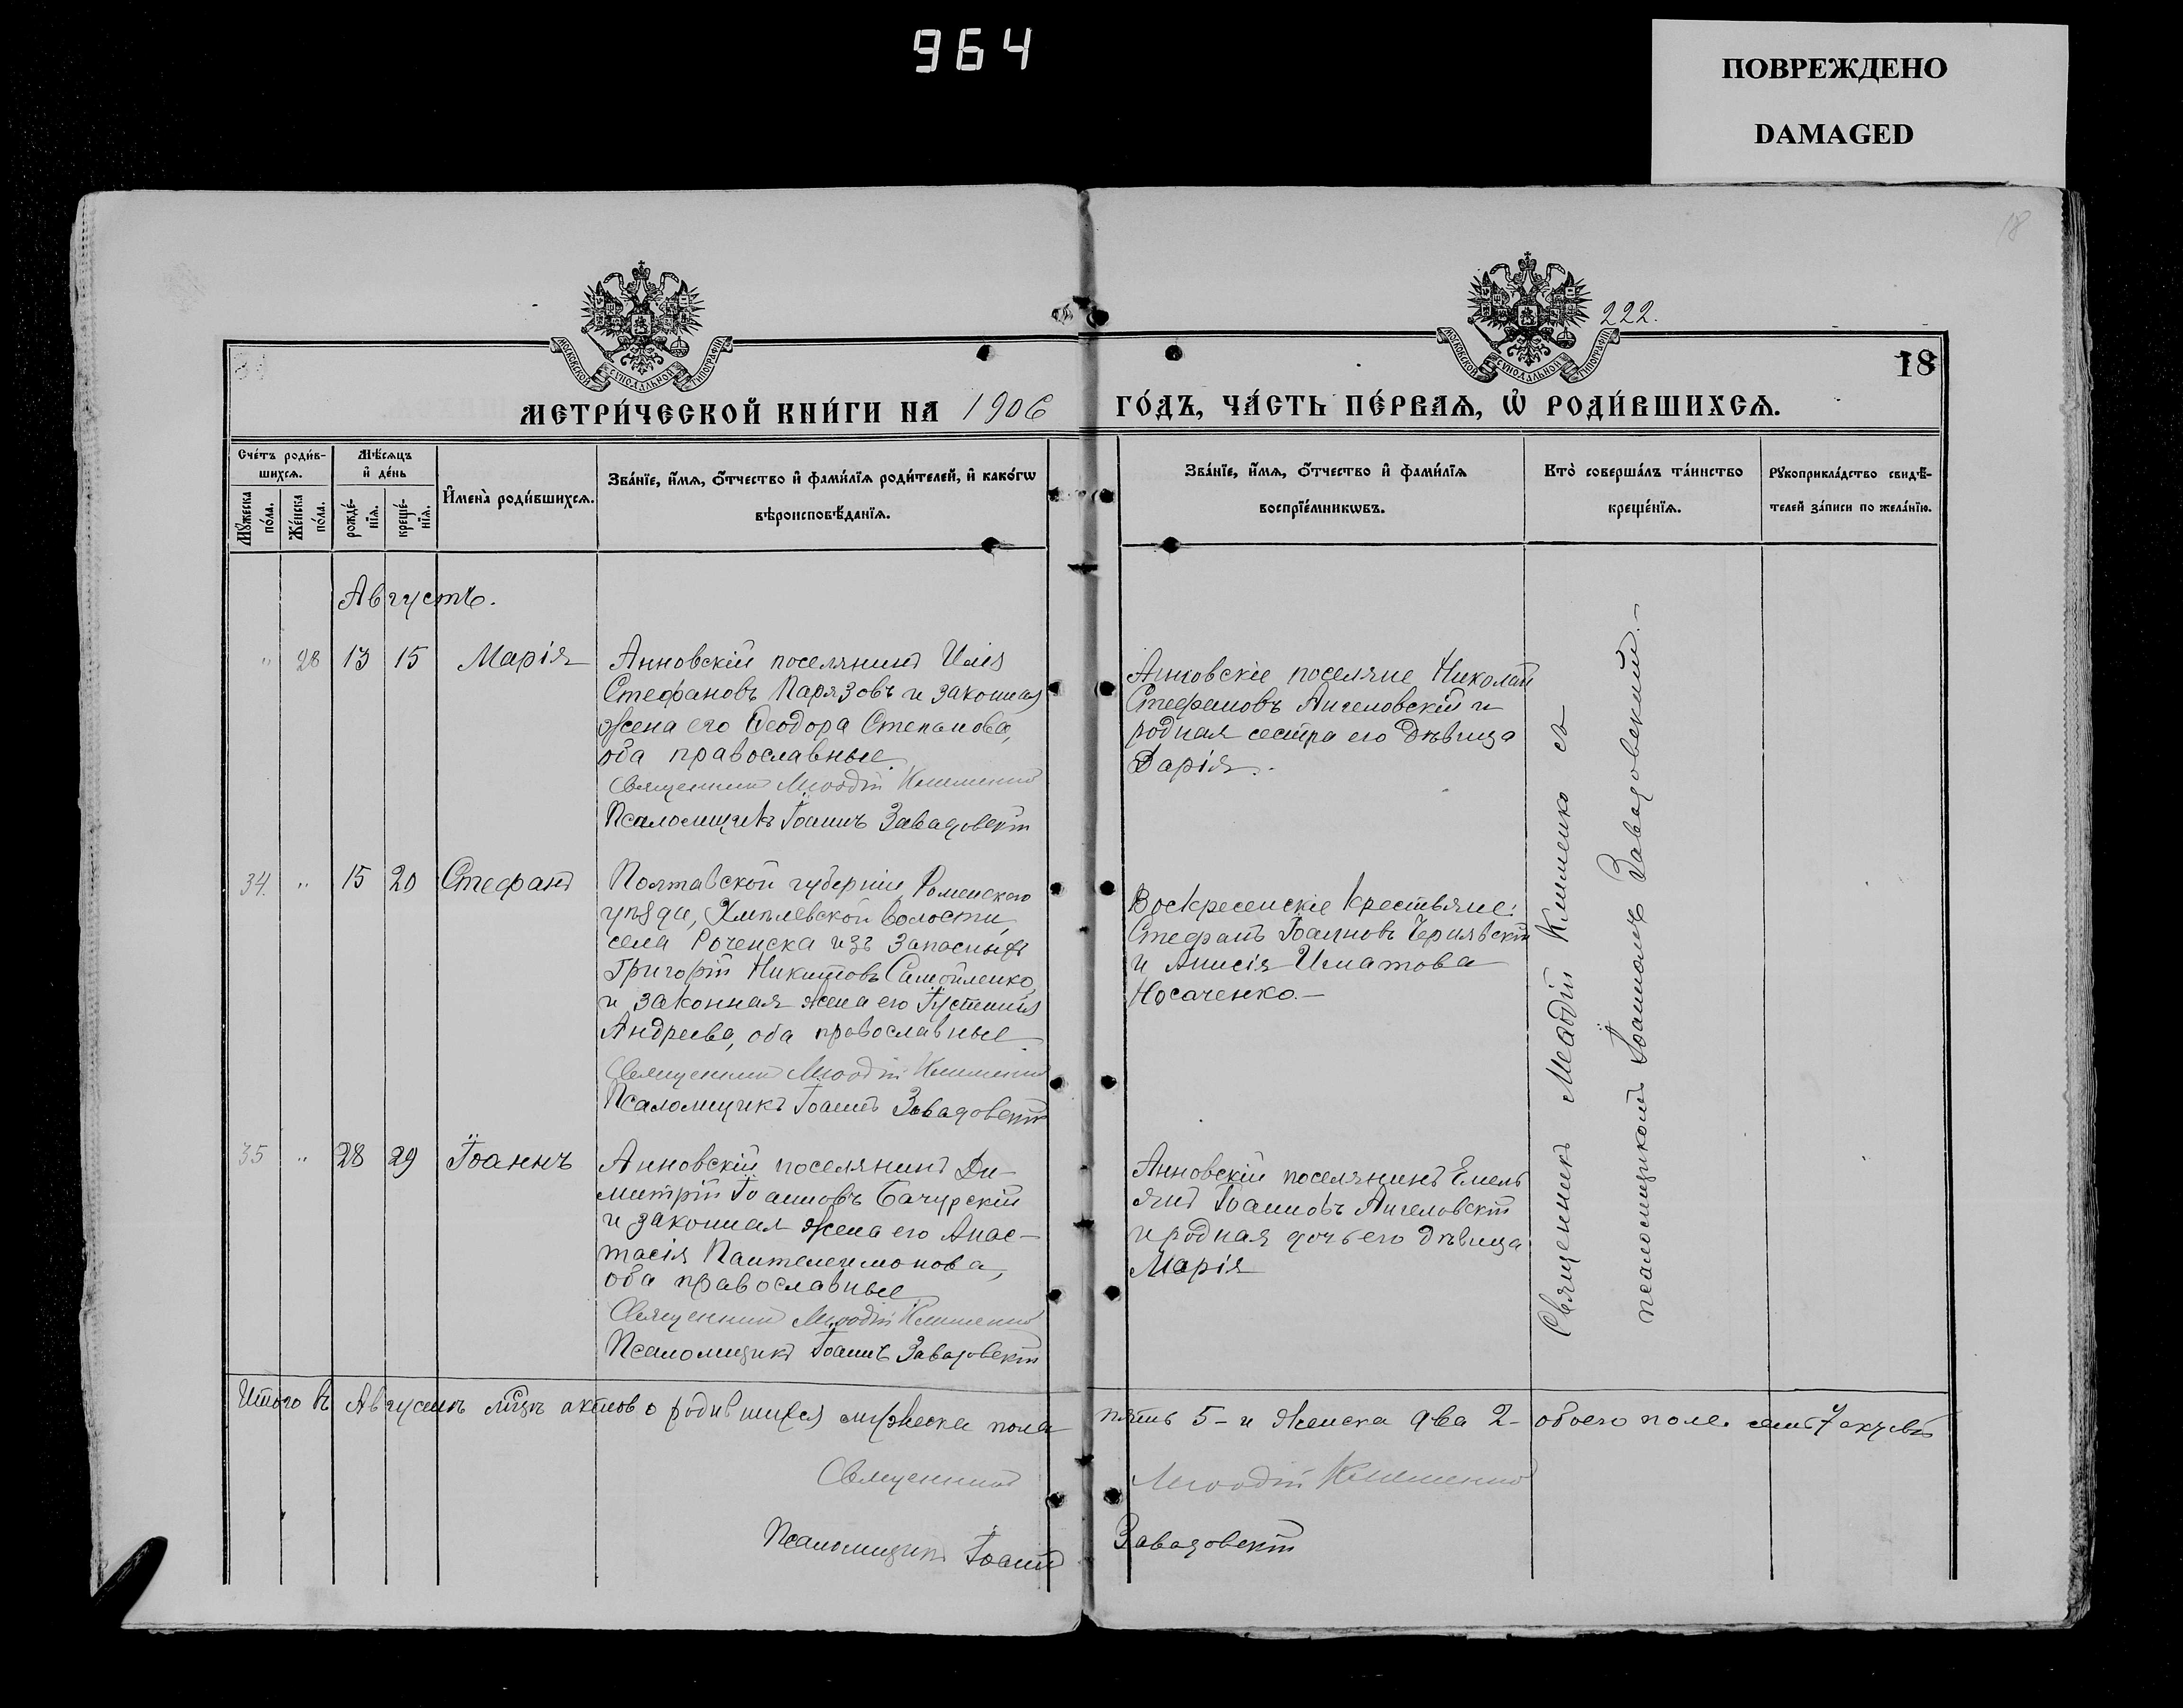 964
ПОВРЕЖДЕНО
DAMAGED
18
222.
18
МОСКОВСКОЙ СУНОДАЛЬНОЙ ТИПОГРАФІИ
МОСКОВСКОЙ СУНОДАЛЬНОЙ ТИПОГРАФІИ
МЕТРИ́ЧЕСКОЙ КНИ́ГИ НА 1906 ГО́ДЪ, ЧА́СТЬ ПЕ́РВАѦ, Ѡ҆ РОДИ́ВШИХСѦ.
Сче́тъ роди́в-
шихсѧ.
Мꙋ́жеска по́ла.
Же́нска по́ла.
Мѣ́сѧцъ
и҆ де́нь
рожде́-
нїѧ.
креще́-
нїѧ.
И҆мена̀ роди́вшихсѧ.
Зва́нїе, и҆́мѧ, ѻ҆́тчество и҆ фами́лїѧ роди́телей, и҆ како́гѡ
вѣроисповѣ́данїѧ.
Зва́нїе, и҆́мѧ, ѻ҆́тчество и҆ фами́лїѧ
воспрїе́мникѡвъ.
Кто̀ соверша́лъ та́инство
креще́нїѧ.
Рꙋкоприкла́дство свидѣ́-
телей за́писи по жела́нїю.
Августъ.
" 28 13 15 Марія
Анновскій поселянинъ Илія
Стефановъ Парязовъ и законная
жена его Ѳеодора Степанова,
оба православные.
Священникъ Меѳодій Клименко
Псаломщикъ Іоаннъ Завадовскій
Анновскіе поселяне Николай
Стефановъ Ангеловскій и
родная сестра его дѣвица
Дарія.
34. " 15 20 Стефанъ
Полтавской губерніи, Роменскаго
уѣзда, Хмѣлевской волости,
села Роченска изъ запасныхъ
Григорій Никитовъ Самойленко
и законная жена его Іустинія
Андреева, оба православные.
Священникъ Меѳодій Клименко
Псаломщикъ Іоаннъ Завадовскій
Воскресенскіе крестьяне:
Стефанъ Іоанновъ Чернявскій
и Анисія Игнатова
Носаченко.—
35 " 28 29 Іоаннъ
Анновскій поселянинъ Ди-
митрій Іоанновъ Бачурскій
и законная жена его Анас-
тасія Пантелеимонова,
оба православные
Священникъ Меѳодій Клименко
Псаломщикъ Іоаннъ Завадовскій
Анновскій поселянинъ Емель
янъ Іоанновъ Ангеловскій
и родная дочь его дѣвица
Марія
Священникъ Меѳодій Клименко съ
псаломщикомъ Іоанномъ Завадовскимъ.—
Итого въ Августѣ мцѣ актовъ о родившихся мужеска пола пять 5 – и женска два 2 – обоего пола семь 7 актовъ
Священникъ Меѳодій Клименко
Псаломщикъ Іоаннъ Завадовскій